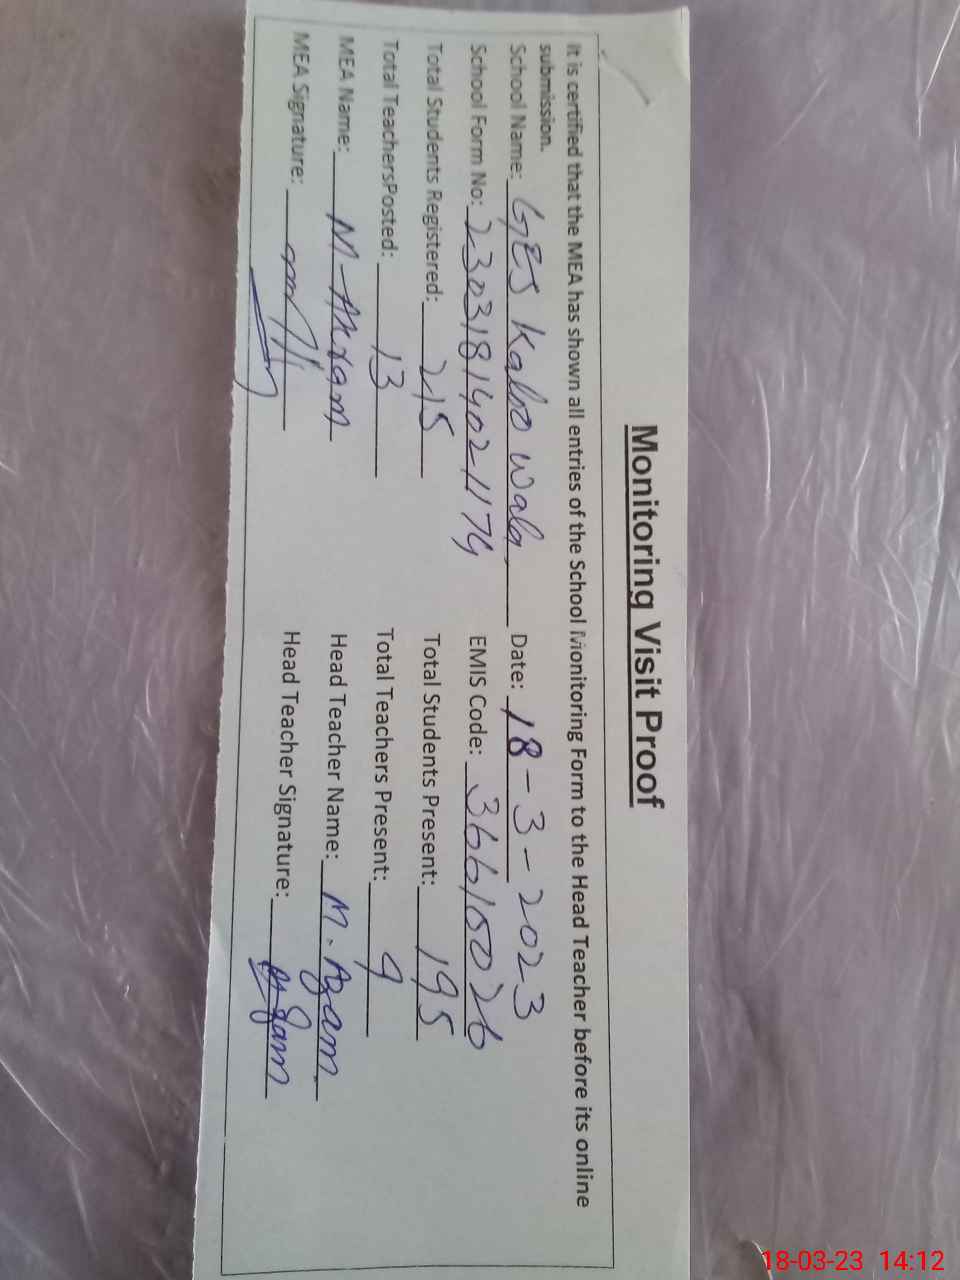 Monitoring Visit Proof
It is certified that the MEA has shown all entries of the School Monitoring Form to the Head Teacher before its online
submission.
School Name: GES Kalro Wala Date: 18-3-2023
School Form No: 23031814021174 EMIS Code: 36610026
Total Students Registered: 215 Total Students Present: 195
Total TeachersPosted: 13 Total Teachers Present: 9
MEA Name: M-Akram Head Teacher Name: M. Azam
MEA Signature: Head Teacher Signature: Azam
18-03-23 14:12